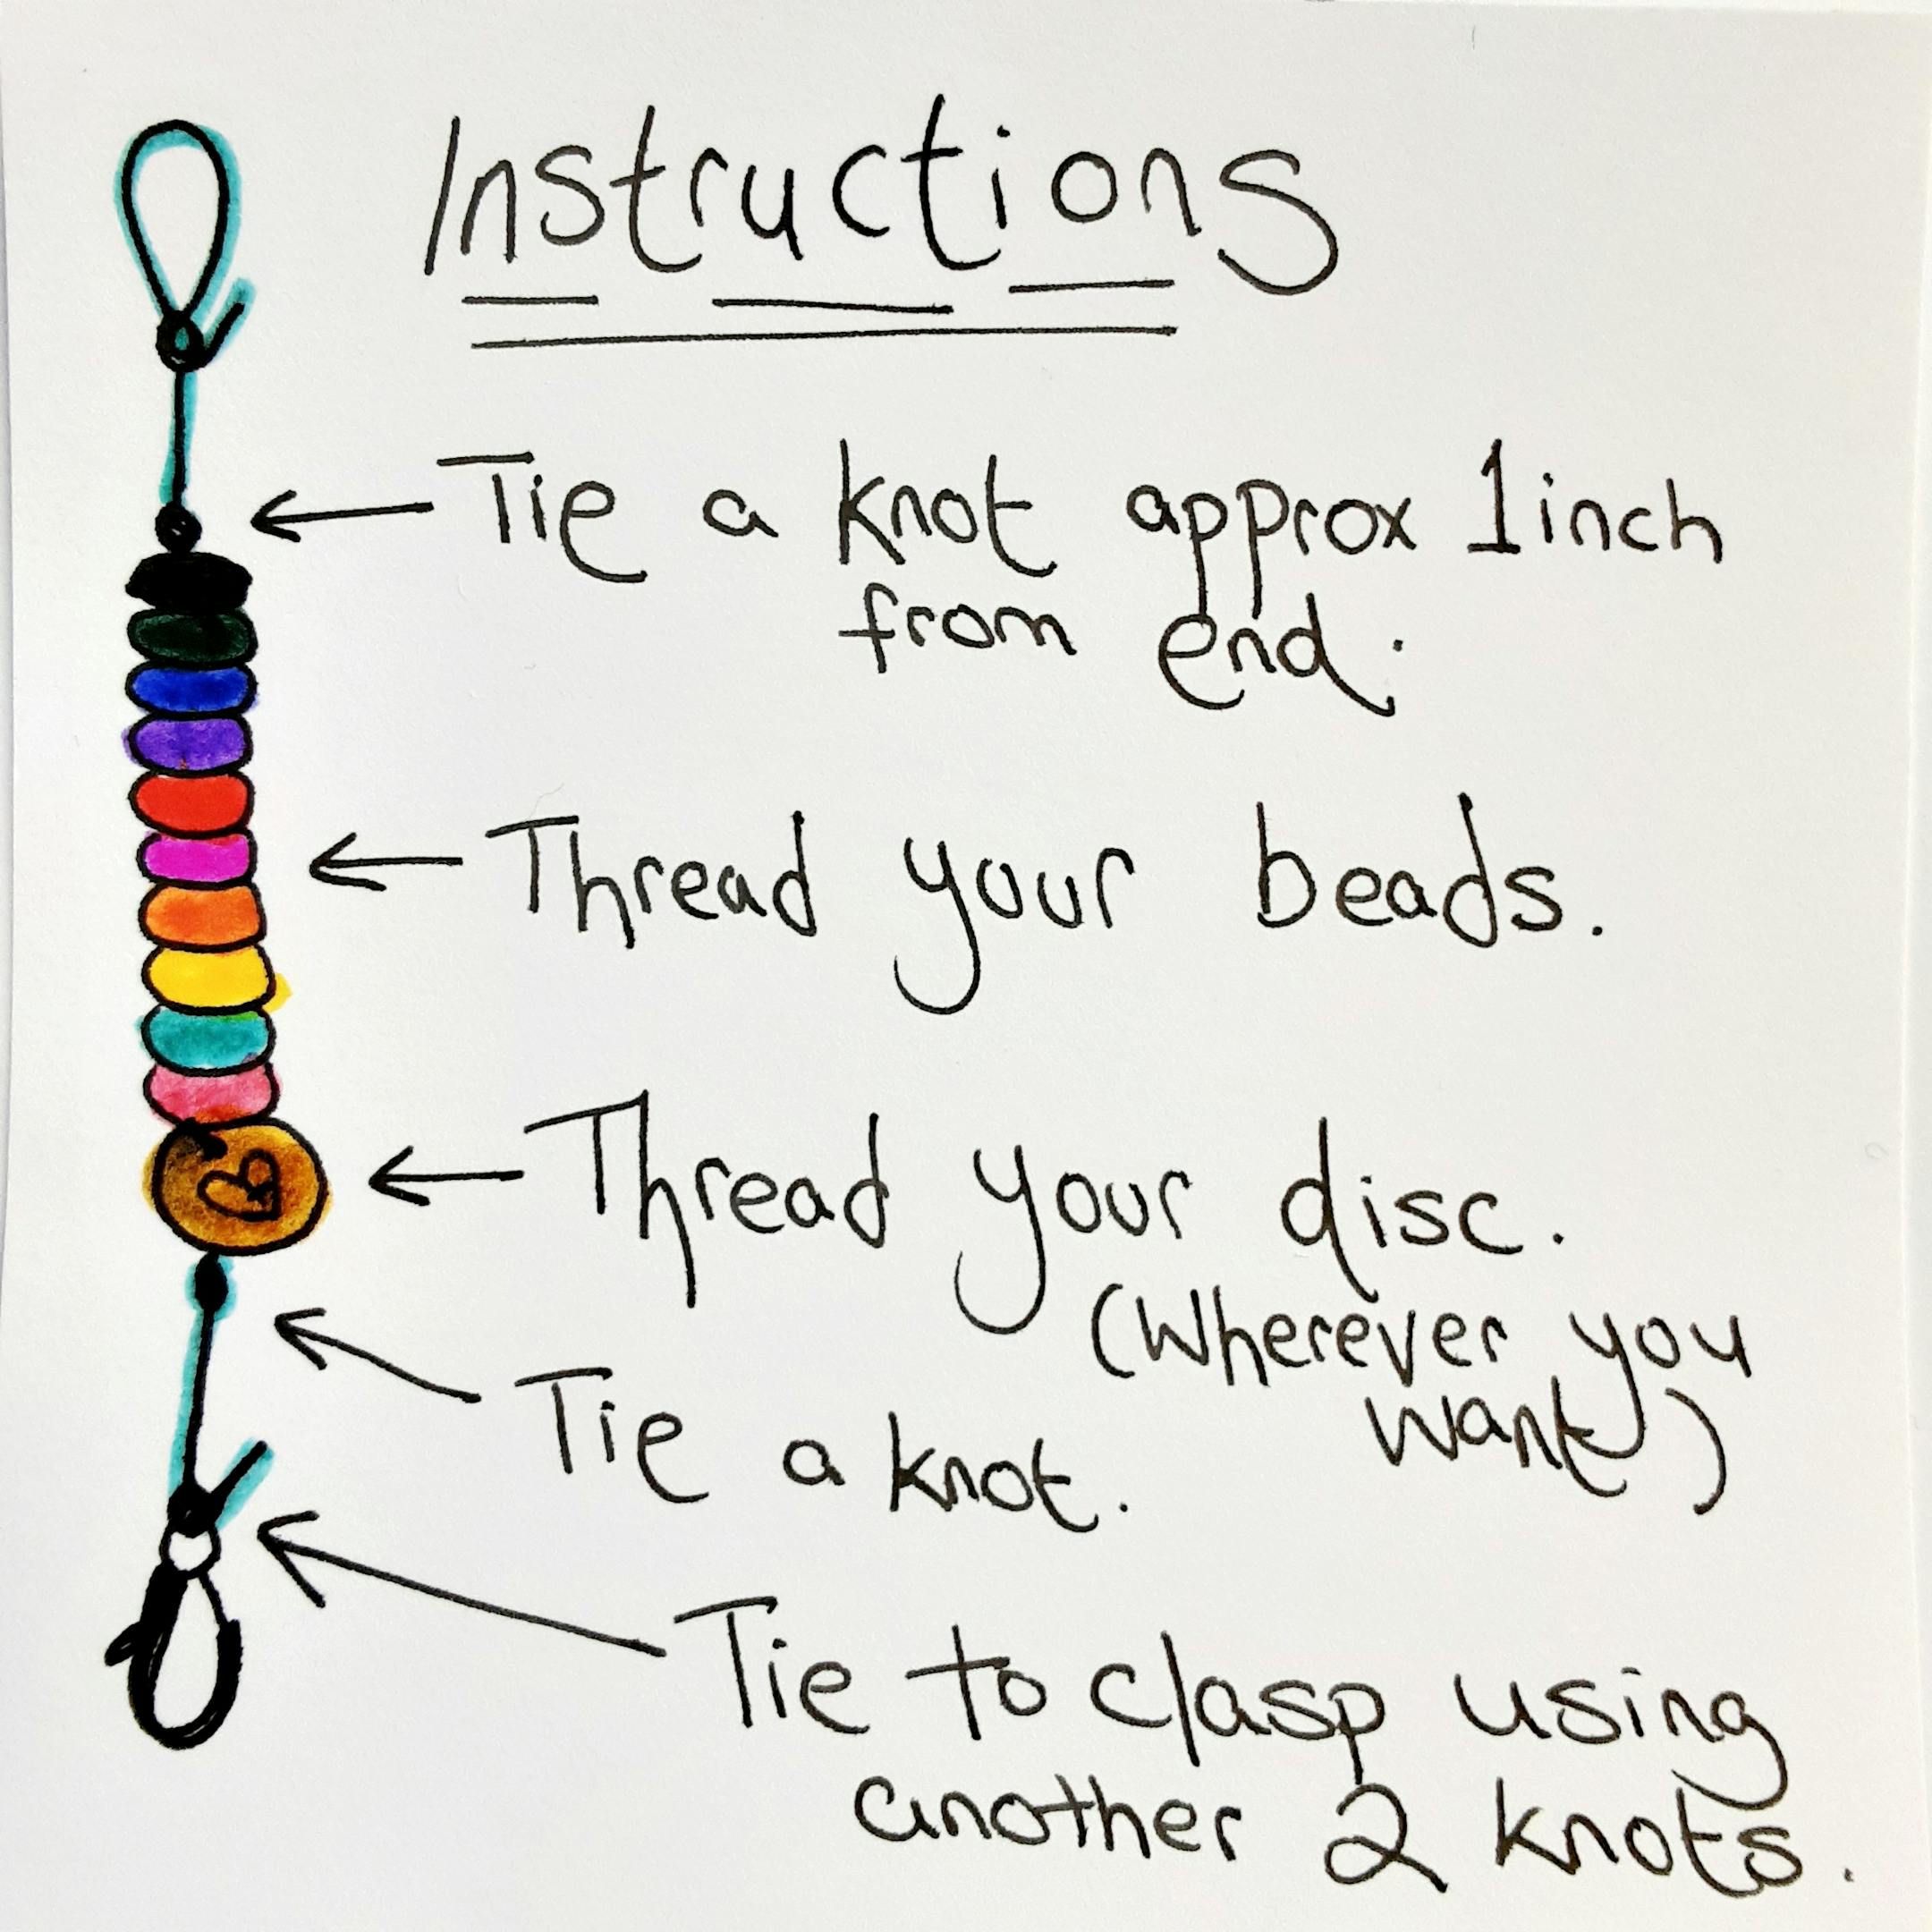 Instructions
Tie a knot approx 1 inch
from end.
Thread your beads.
Thread your disc.
(Wherever you
want)
Tie a knot.
Tie to clasp using
another 2 knots.